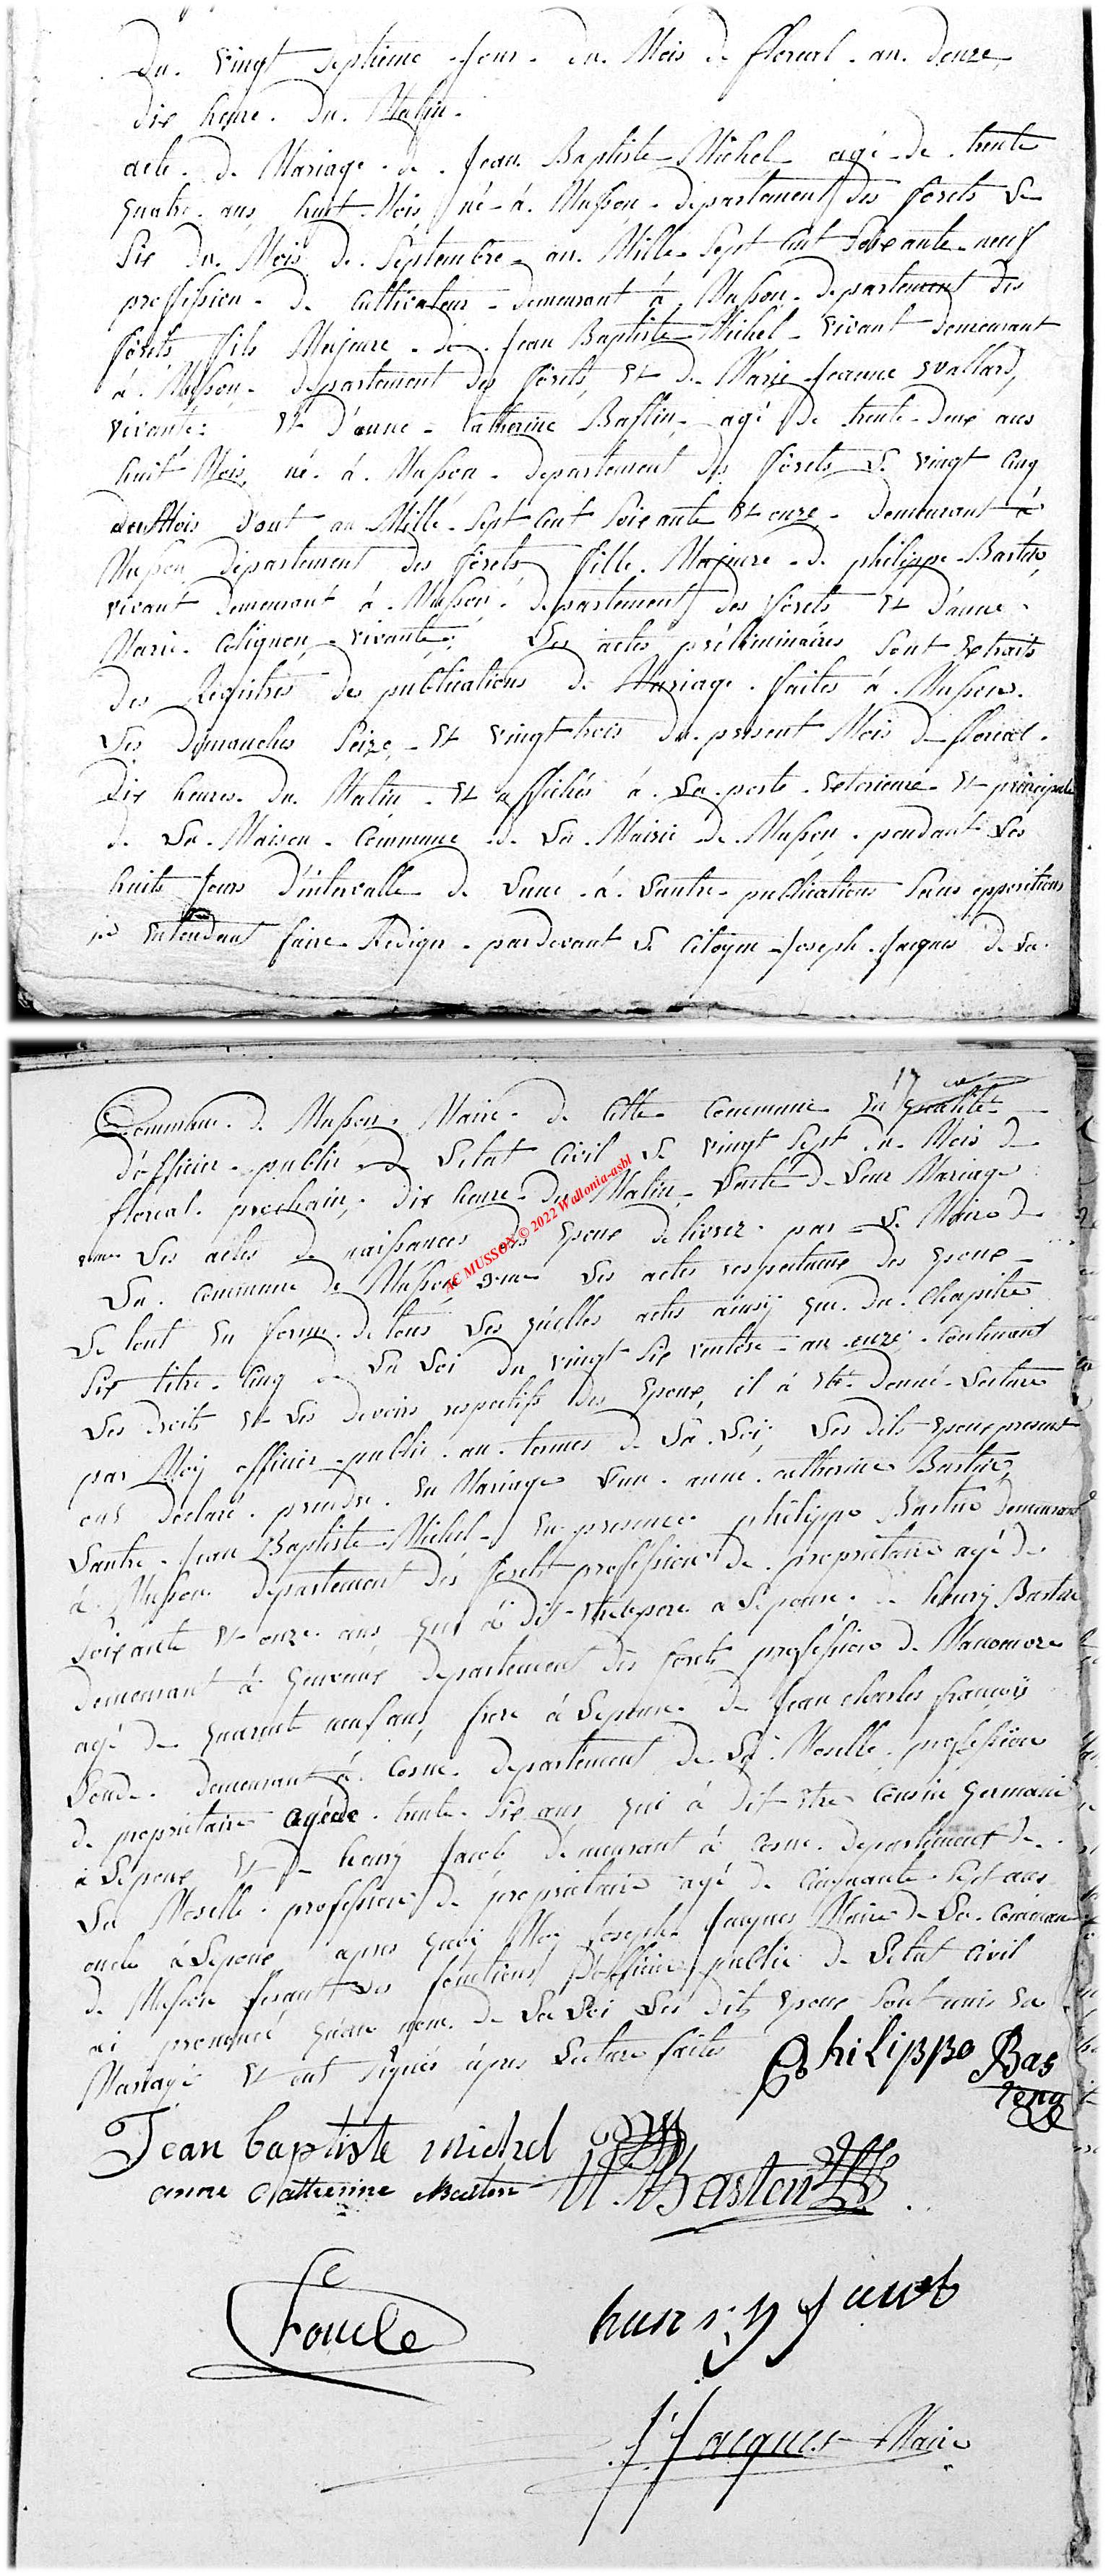 Du. vingt Septieme Jour. du. Mois de floreal. an. douze,
dix heure. Du. Matin.
acte. de Mariage. de. Jean Baptiste Michel agé de trente
quatre. ans huit Mois né à Musson. departement des forets Le
Six du. Mois de. Septembre. an. Mille. Sept Cent Soixante. neuf
proffession. de Cultivateur. demeurant à Musson. departement des
forêts fils Majeure. de. Jean Baptiste Michel. vivant demeurant
à Musson. departement des forêts, Et de Marie Jeanne Wallard,
vivante: Et d'anne. Catherine Bastin, agé de trente. deux ans
huit Mois, né. à. Musson. departement des forêts Le vingt Cinq
du Mois d'out an Mille. Sept Cent Soixante Et onze. demeurant à
Musson departement des forêts fille. Majeure. de philippe Bastin,
vivant demeurant à Musson. departement des forets Et d'anne.
Marie. Colignon. vivante; Les actes préliminaires Sont Extraits
des Registres des publications de Mariage. faites à Musson.
Les dimanches Seize. Et vingt trois du. present Mois de floreal.
dix heures. du. Matin. Et affichés à La. porte. Exterieure Et principale
de La. Maison. Commune de La. Mairie de Musson. pendant Les
huits Jours d'intervalle de Lune. à. Lautre publications Sans oppositions
Entendant faire Rediger. pardevant Le Citoyen Joseph. Jacques de La.
17
Commune. de Musson. Maire. de Cette Commune En qualité
d'officier. public de Letat Civil Le vingt Sept du. Mois de
floreal. prochain, dix heure. du Matin. Lacte de Leur Mariage
Les actes de naissances des Epoux delivrez. par Le Maire de
AC MUSSON © 2022 Wallonia-asbl
La. Commune de Musson Les actes respectueux des Epoux
Le tout En forme. de tous Les quelles actes ainsy que. du. Chapitre
Six titre. Cinq de La Loi du vingt Six ventose. an onze. Contenant
Les droits Et Les devoirs respectifs des Epoux, il à Eté. Donné. Lecture
par Moy officier public. au. termes de La. Loi, Les dits Epoux present
ont declaré. prendre. En Mariage Lun. anne. catherine Bastin,
Lautre. Jean Baptiste Michel. En presence philippe Bastin demeurant
à Musson departement des forêts profession de. proprietaire agé de
Soixante Et onze. ans, qui à dit Etre pere a Lepouse. de henry Bastin
demeurant à departement des forêts profession de Manœuvre
agé de quarante neuf ans, frere à Lepouse. de Jean charles francois
demeurant à Cosne. departement de. La. Moselle. profession
de proprietaire agéde. trente. Six ans, qui à dit Etre Cousin germain
à Lepoux Et de henry Jacob demeurant à Cosne departement de.
La Moselle. profession de proprietaire agé de Cinquante. Sept ans
oncle à Lepoux apres quoi Moy Joseph Jacques Maire de La. Commune
de Musson fesant Les fonctions d'officier public de Letat Civil
ai prononcé quau nom. de La Loi Les dits Epoux Sont unis En
Mariage Et ont Signés apres Lecture faites Philippe Bas
teng
Jean baptiste michel
anne Catherine Bastin H. Basten
henry Jacob
J Jacques Maire